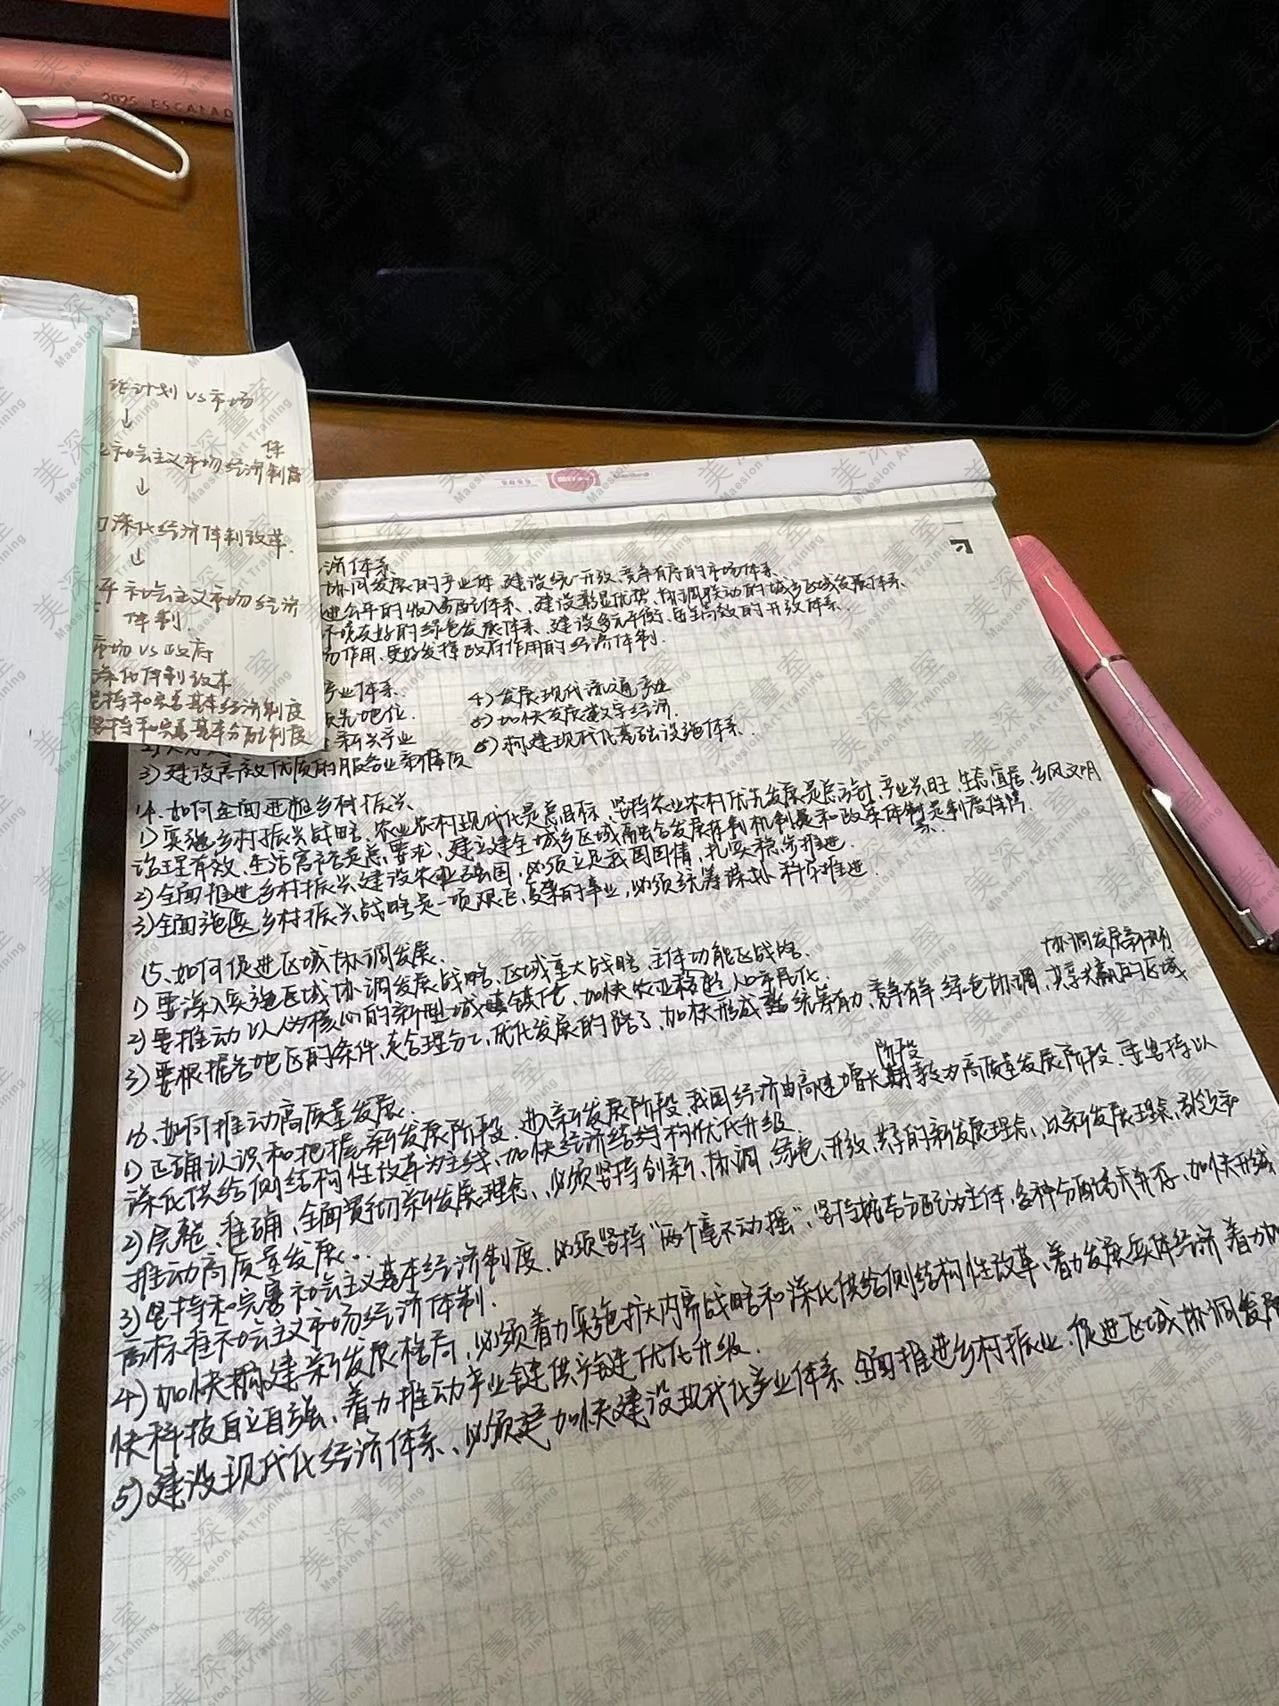 2025 ESCALAD
计划 VS 市场
↓
社会主义市场经济体制
↓
深化经济体制改革.
↓
社会主义市场经济
体制.
市场 VS 政府
深化体制改革
坚持和完善基本经济制度
坚持和完善基本分配制度
济体系.
协同发展的产业体 建设统一开放、竞争有序的市场体系.
的收入分配体系、建设彰显优势、协调联动的城乡区域发展体系.
的绿色发展体系、建设多元平衡、安全高效的开放体系.
作用、更好发挥政府作用的经济体制.
产业体系.
4) 发展现代流通产业
先地位.
5) 加快发展数字经济.
新兴产业
6) 构建现代化基础设施体系.
3) 建设高效优质的服务业新体
14. 如何全面进推乡村振兴
1) 实施乡村振兴战略, 农业农村现代化是总目标, 坚持农业农村优先发展是总方针, 产业兴旺、生态宜居、乡风文明
治理有效、生活富裕是总要求, 建立健全城乡区域融合发展体制机制是制度保障.
2) 全面推进乡村振兴, 建设农业强国, 必须立足我国国情, 扎实稳步推进.
3) 全面施 乡村振兴战略是一项艰巨、复杂的事业, 必须统筹谋划 科学推进.
15. 如何促进区域协调发展.
1) 要深入实施区域协调发展战略、区域重大战略、主体功能区战略.
协调发展新
2) 要推动以人为核心的新型城镇化、加快农业转移人口市民化.
3) 要根据各地区的条件, 走合理分工、优化发展的路子, 加快形成 统筹有力、竞争有序、绿色协调、共享共赢的区域
16. 如何推动高质量发展.
阶段
1) 正确认识和把握新发展阶段, 进入新发展阶段, 我国经济由高速增长 转为高质量发展阶段, 要坚持以
深化供给侧结构性改革为主线, 加快经济结构优化升级.
2) 完整、准确、全面贯彻新发展理念, 必须坚持创新、协调、绿色、开放、共享的新发展理念, 以新发展理念引领
推动高质量发展...
3) 坚持和完善社会主义基本经济制度, 必须坚持“两个毫不动摇”, 坚持按劳分配为主体, 多种分配方式并存, 加快形成
高标准社会主义市场经济体制.
4) 加快构建新发展格局, 必须着力实施扩大内需战略和深化供给侧结构性改革、着力发展实体经济 着力加
快科技自立自强、着力推动产业链供应链优化升级.
5) 建设现代化经济体系, 必须 加快建设现代化产业体系、全面推进乡村振业、促进区域协调发展
美深畫室
Maesion Art Training